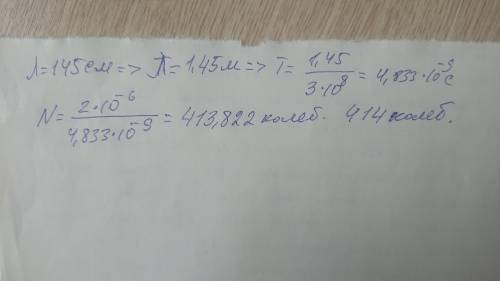 λ=145см=> λ=1,45м=> T= 1,45/3·10⁸ = 4,833·10⁻⁹с
N= 2·10⁻⁶/4,833·10⁻⁹ = 413,822 колеб. 414 колеб.